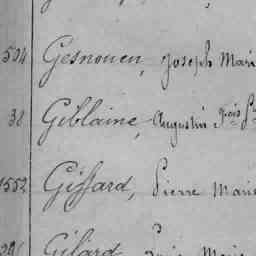 504 Gesnouen, Joseph Mari
38 Giblaine, Augustin
1552 Giffard, Pierre Marie
Gilard